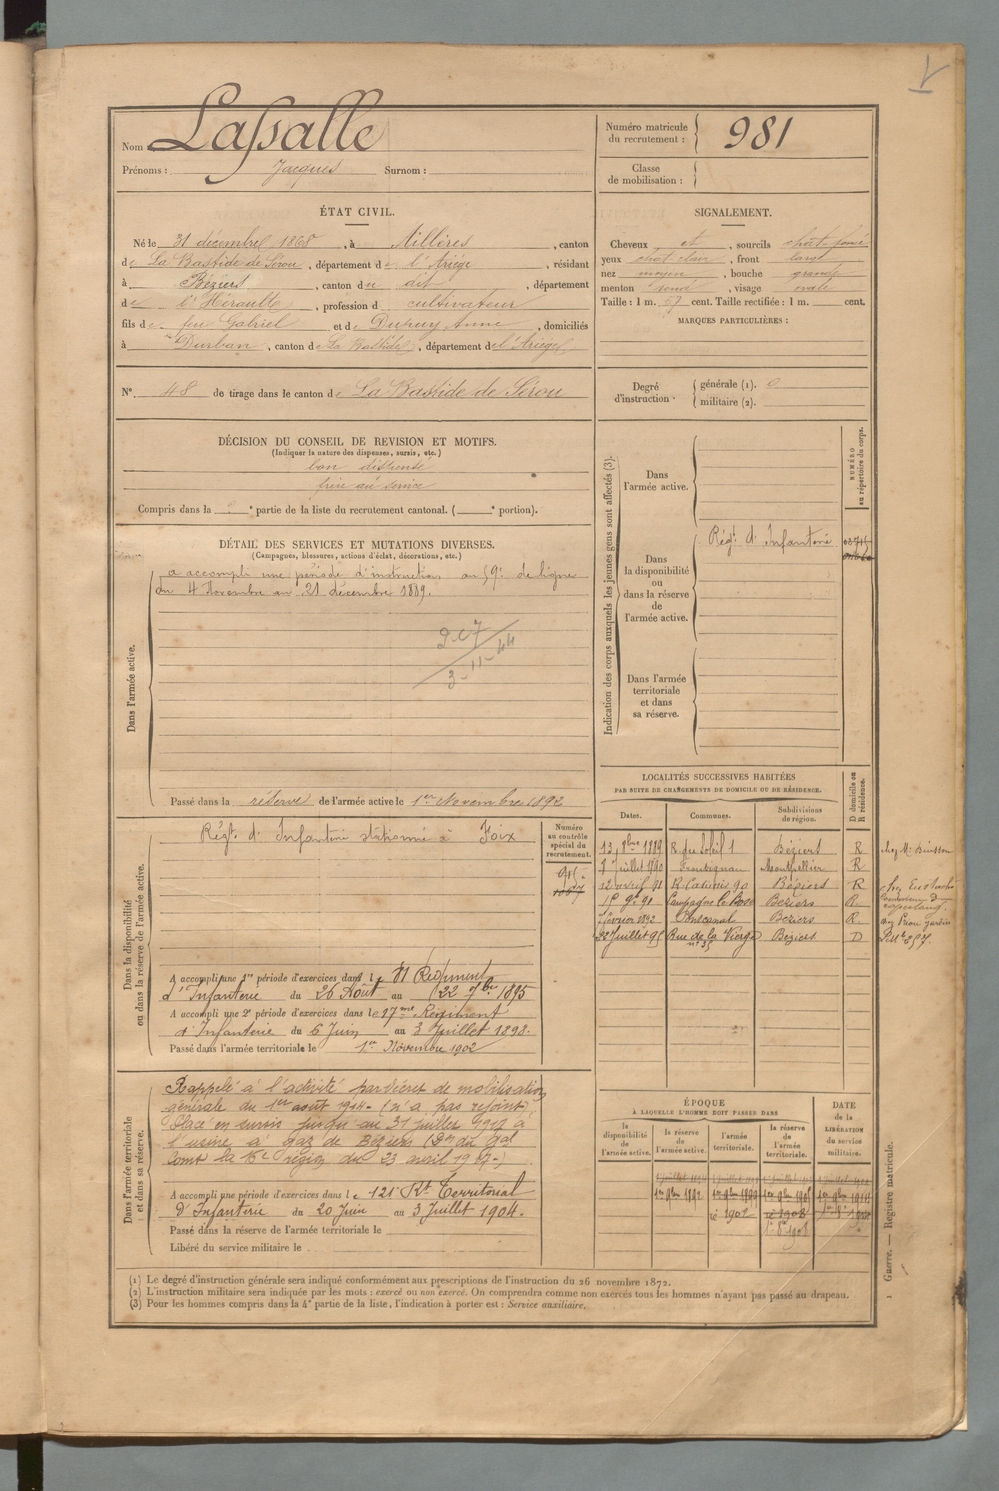 Nom Lassalle
Prénoms : Jacques Surnom :
Numéro matricule du recrutement : 981
Classe de mobilisation :
ÉTAT CIVIL.
Né le 31 décembre 1868, à Allières, canton
de La Bastide de Sérou, département de l'Ariège, résidant
à Béziers, canton du dit, département
de l'Hérault, profession de cultivateur
fils de feu Gabriel et de Dupuy Anne, domiciliés
à Durban, canton de La Bastide, département de l'Ariège
N° 48 de tirage dans le canton de La Bastide de Sérou
SIGNALEMENT.
Cheveux et, sourcils chât. foncé
yeux chât clair, front large
nez moyen, bouche grande
menton rond, visage ovale
Taille : 1 m. 57 cent. Taille rectifiée : 1 m. cent.
MARQUES PARTICULIÈRES :
Degré d'instruction. générale (1). 0
militaire (2).
DÉCISION DU CONSEIL DE REVISION ET MOTIFS.
(Indiquer la nature des dispenses, sursis, etc.)
bon dispensé
frère au service
Compris dans la e partie de la liste du recrutement cantonal. ( e portion).
DÉTAIL DES SERVICES ET MUTATIONS DIVERSES.
(Campagnes, blessures, actions d'éclat, décorations, etc.)
Dans l'armée active.
a accompli une période d'instruction au 59e de ligne
du 4 Novembre au 21 décembre 1889.
3-11-44
Passé dans la réserve de l'armée active le 1er Novembre 1892
Indication des corps auxquels les jeunes gens sont affectés (3).
NUMÉRO au répertoire du corps.
Dans l'armée active.
Dans la disponibilité ou dans la réserve de l'armée active.
Régt. d'Infanterie
Dans l'armée territoriale et dans sa réserve.
Dans la disponibilité ou dans la réserve de l'armée active.
Régt. d'Infanterie stationné à Foix
Numéro au contrôle spécial du recrutement.
915
A accompli une 1re période d'exercices dans le Régiment
d'Infanterie du 26 Août au 22 7bre 1895
A accompli une 2e période d'exercices dans le 17me Régiment
d'Infanterie du 6 Juin au 3 Juillet 1898.
Passé dans l'armée territoriale le 1er Novembre 1902
LOCALITÉS SUCCESSIVES HABITÉES
PAR SUITE DE CHANGEMENTS DE DOMICILE OU DE RÉSIDENCE.
Dates. Communes. Subdivisions de région. D domicile ou R résidence.
13 8bre 1889 R. du Soleil 1 Béziers R
7 juillet 1890 Frontignan Montpellier R
12 avril 91 R. Casimir 90 Béziers R
Campagne le Bosc Béziers R
février 1892 Béziers R
22 Juillet 95 Rue de la Vierge n° 35 Béziers D
Dans l'armée territoriale et dans sa réserve.
Rappelé à l'activité par décret de mobilisation
générale du 1er août 1914 - (n'a pas rejoint).
Placé en sursis jusqu'au 31 juillet 1917 à
l'usine à gaz de Béziers (Don du Gal
Comt la 16e région du 23 avril 1917-)
A accompli une période d'exercices dans le 121e Rt Territorial
d'Infanterie du 20 Juin au 3 Juillet 1904.
Passé dans la réserve de l'armée territoriale le
Libéré du service militaire le
ÉPOQUE
À LAQUELLE L'HOMME DOIT PASSER DANS
la disponibilité de l'armée active. la réserve de l'armée active. l'armée territoriale. la réserve de l'armée territoriale. DATE de la LIBÉRATION du service militaire.
1er 9bre 1892 1er 9bre 1899
1902
Guerre. — Registre matricule.
(1) Le degré d'instruction générale sera indiqué conformément aux prescriptions de l'instruction du 26 novembre 1872.
(2) L'instruction militaire sera indiquée par les mots : exercé ou non exercé. On comprendra comme non exercés tous les hommes n'ayant pas passé au drapeau.
(3) Pour les hommes compris dans la 4e partie de la liste, l'indication à porter est : Service auxiliaire.